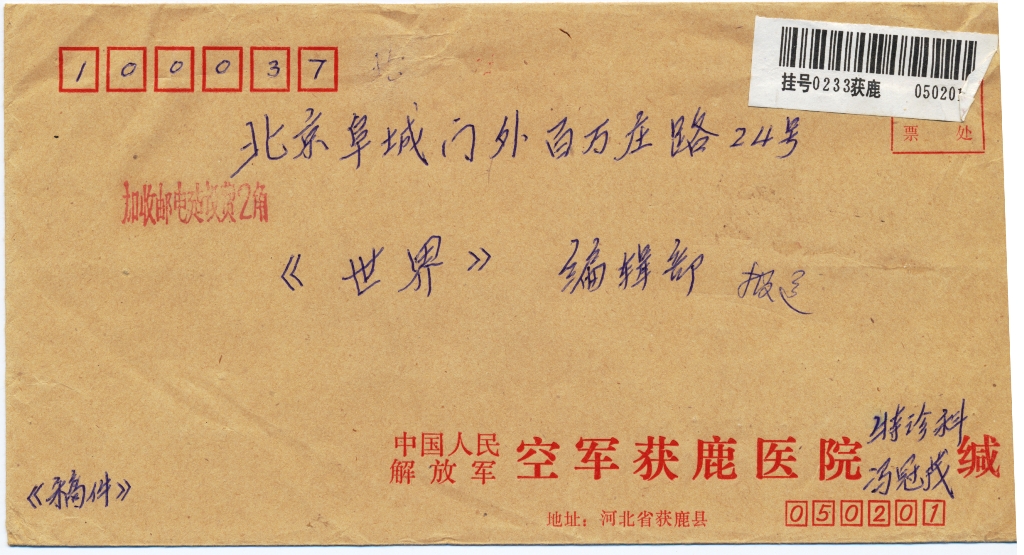 100037
挂号0233获鹿 050201
票 处
北京阜城门外百万庄路24号
加收邮电建设费2角
《世界》 编辑部
中国人民解放军 空军获鹿医院 特诊科 缄
《稿件》
地址：河北省获鹿县 050201